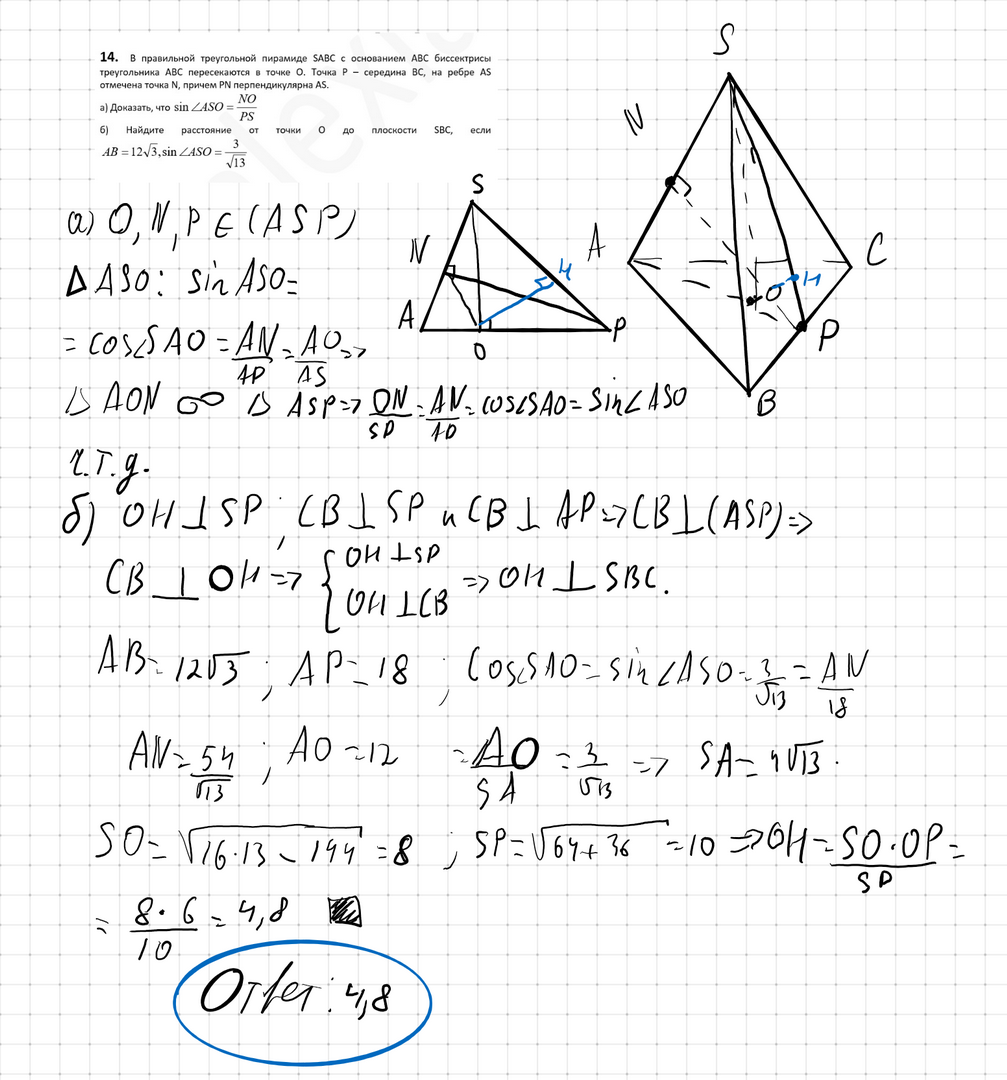 14. В правильной треугольной пирамиде SABC с основанием ABC биссектрисы
треугольника ABC пересекаются в точке O. Точка P – середина BC, на ребре AS
отмечена точка N, причем PN перпендикулярна AS.
а) Доказать, что sin∠ASO = NO/PS
б) Найдите расстояние от точки O до плоскости SBC, если
AB = 12√3, sin∠ASO = 3/√13
S
N
A
C
O
H
P
B
S
N
H
A
O
P
а) O, N, P ∈ (ASP)
Δ ASO: sin ASO =
= cos∠SAO = AN/AP = AO/AS =>
Δ AON ∞ Δ ASP => ON/SP = AN/AP = cos∠SAO = sin∠ASO
ч.т.д.
б) OH ⊥ SP ; CB ⊥ SP и CB ⊥ AP => CB ⊥ (ASP) =>
CB ⊥ OH => { OH ⊥ SP
OH ⊥ CB => OH ⊥ SBC.
AB = 12√3 ; AP = 18 ; cos∠SAO = sin∠ASO = 3/√13 = AN/18
AN = 54/√13 ; AO = 12 = AO/SA = 3/√13 => SA = 4√13.
SO = √16·13 - 144 = 8 ; SP = √64 + 36 = 10 => OH = SO·OP/SP =
= 8·6/10 = 4,8
Ответ: 4,8